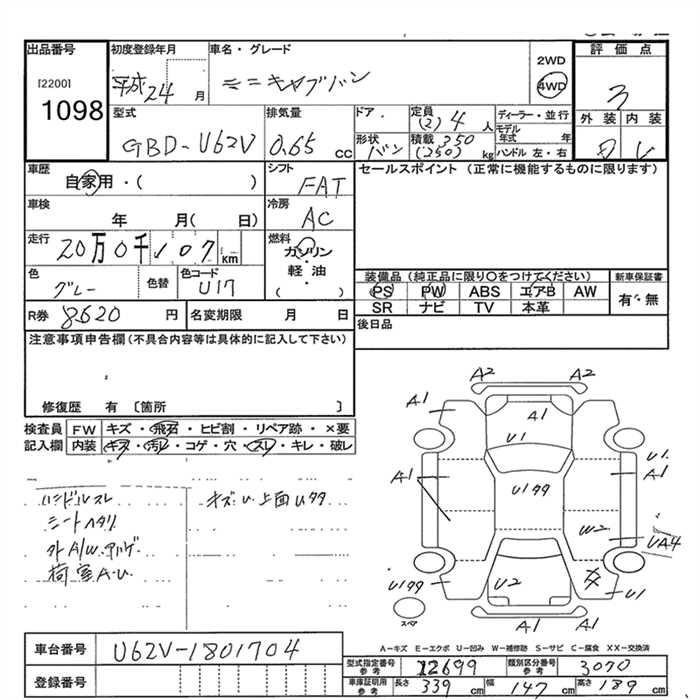 出品番号
[2200]
1098
初度登録年月
平成24 月
車名・グレード
ミニキャブバン
2WD
4WD
評価点
3
型式
GBD-U62V
排気量
0.65 cc
ドア
形状
バン
定員
(2) 4 人
積載 350
(250) kg
ディーラー・並行
モデル年式 年
ハンドル 左・右
外装 内装
車歴
自家用・( )
シフト
FAT
セールスポイント (正常に機能するものに限ります)
車検
年 月( 日)
冷房
AC
走行
20万0千107 km
燃料
ガソリン
・
軽油
( )
色
グレー
色替
色コード
U17
装備品(純正品に限り〇をつけてください)
PS PW ABS エアB AW
SR ナビ TV 本革
新車保証書
有・無
R券 8620 円
名変期限 月 日
後日品
注意事項申告欄(不具合内容等は具体的に記入して下さい)
修復歴 有 〔箇所 〕
検査員
記入欄
FW キズ・飛石・ヒビ割・リペア跡・×要
内装 キズ・汚レ・コゲ・穴・スレ・キレ・破レ
ハンドルスレ
シートヘタリ
外A/W.アルゲ
荷室A-U.
キズU.上面Uタタ
A2 A2
A1 A1 A1
U1 U1
A1 A1
U1タタ
W2
UA4
U1タタ U2 U1
スペア
A1 A1
A-キズ E-エクボ U-凹み W-補修跡 S-サビ C-腐食 XX-交換済
車台番号
U62V-1801704
登録番号
型式指定番号
参考
12699
類別区分番号
参考
3070
車庫証明用
参考
長さ 339 cm
幅 147 cm
高さ 189 cm